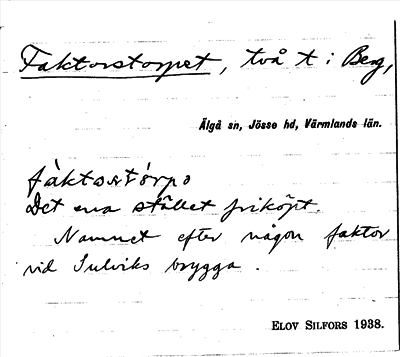 Faktorstorpet, två t i Berg,
Älgå sn, Jösse hd, Värmlands län.
fàktoṣtórpə
Det ena stället friköpt.
Namnet efter någon faktor
vid Sulviks brygga.
ELOV SILFORS 1938.